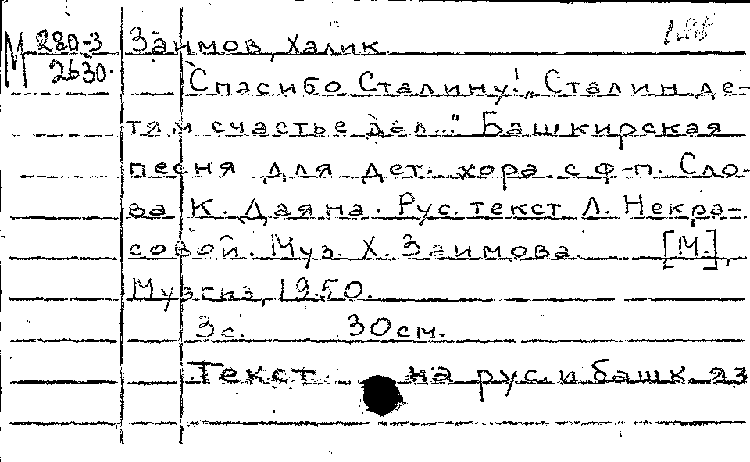 М 280-3 Заимов, Халик
2630. Спасибо Сталину! „Сталин де-
тям счастье дал..." Башкирская
песня для дет. хора с ф-п. Сло-
ва К. Даяна. Рус. текст Л. Некра-
совой. Муз. Х. Заимова. [М.],
Музгиз, 1950.
3 с. 30 см.
Текст на рус. и башк. яз